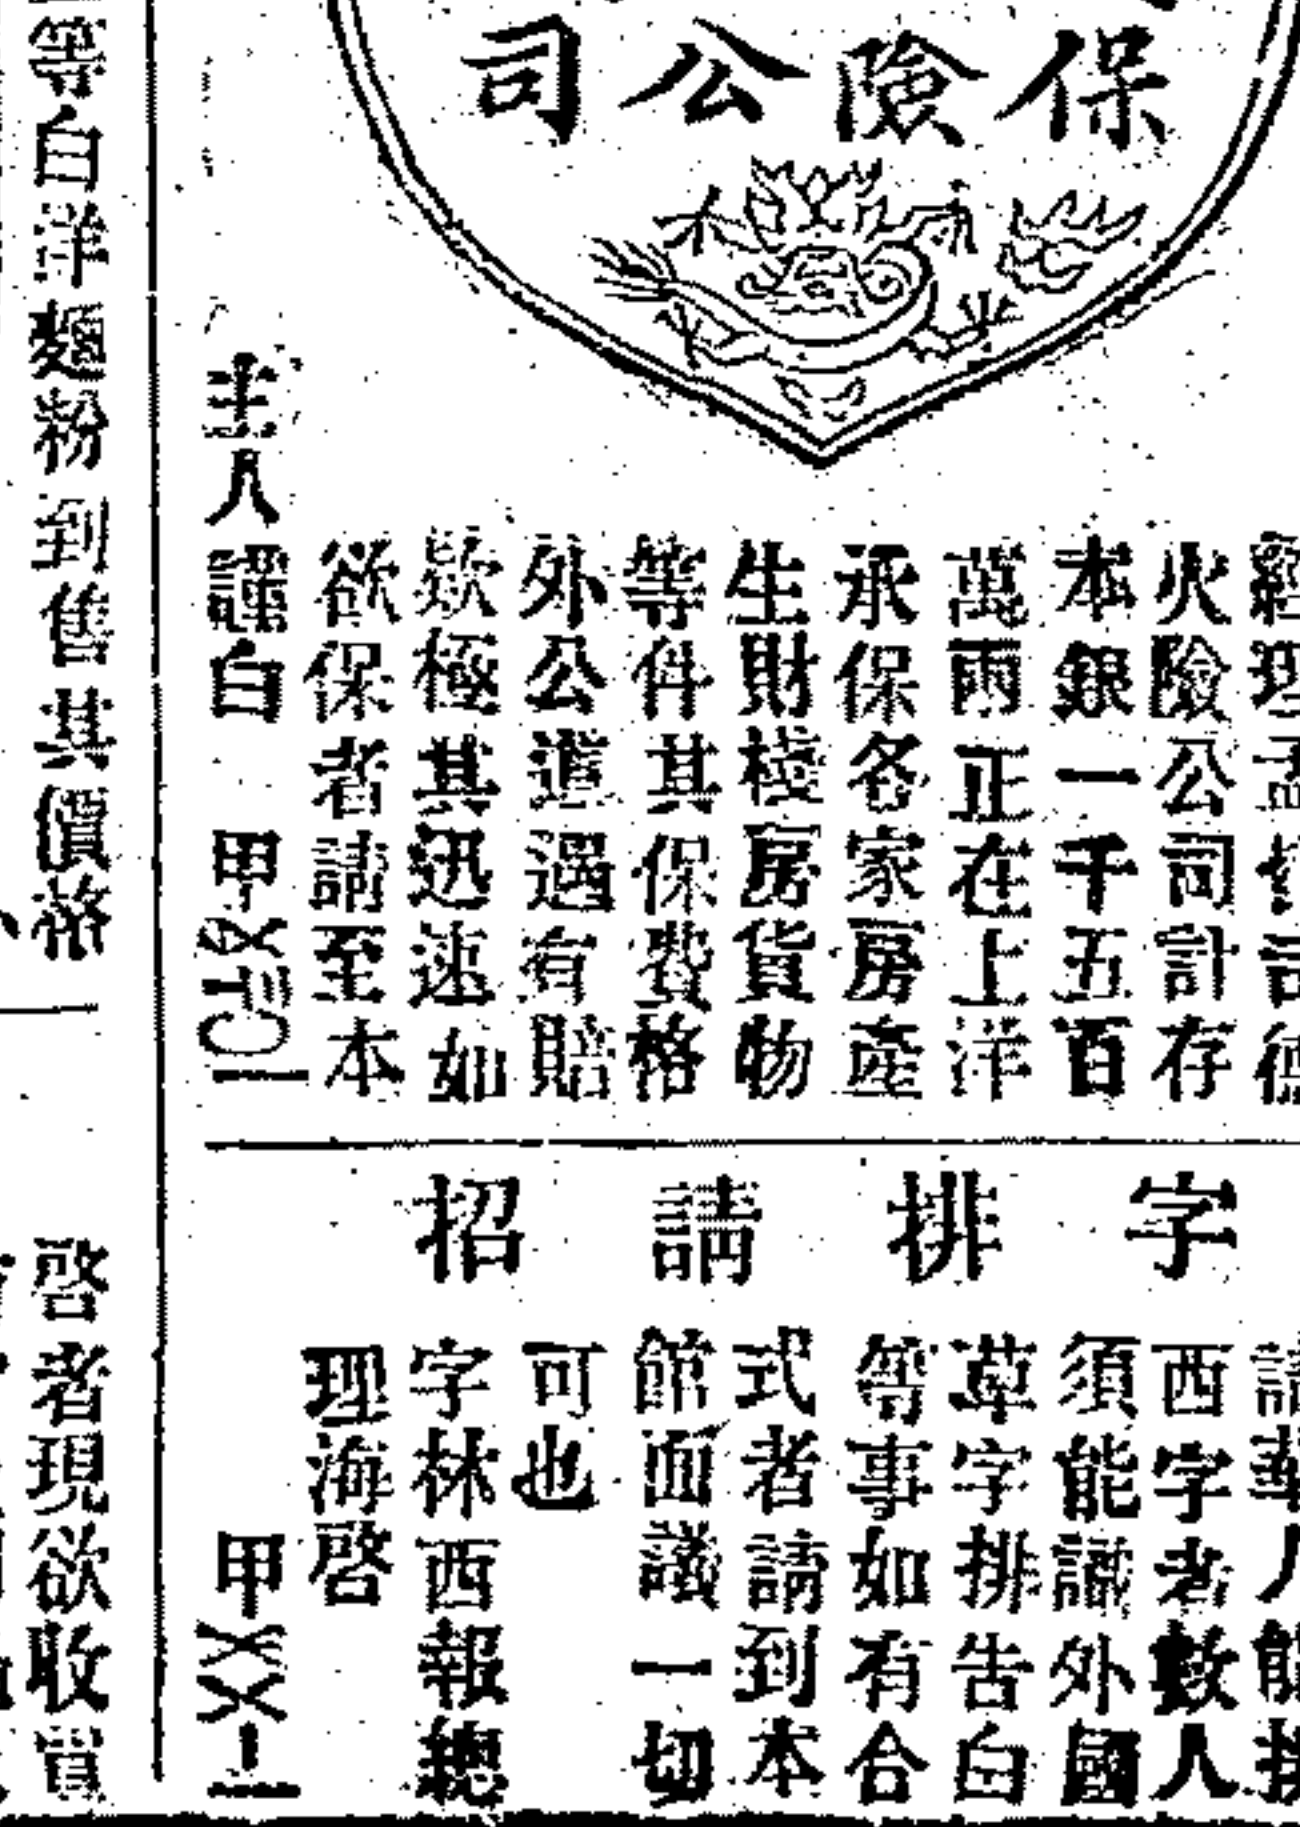 保險公司
火險公司計存
本銀一千五百
萬兩正在上洋
承保各家房產
生財棧房貨物
等件其保費格
外公道遇有賠
欵極其迅速如
欲保者請至本
主人謹白
字排請招
西字者數人
須能識外國
草字排告白
等事如有合
式者請到本
館面議一切
可也
字林西報總
理海啓
等白洋麵粉到售其價格
啓者現欲收買